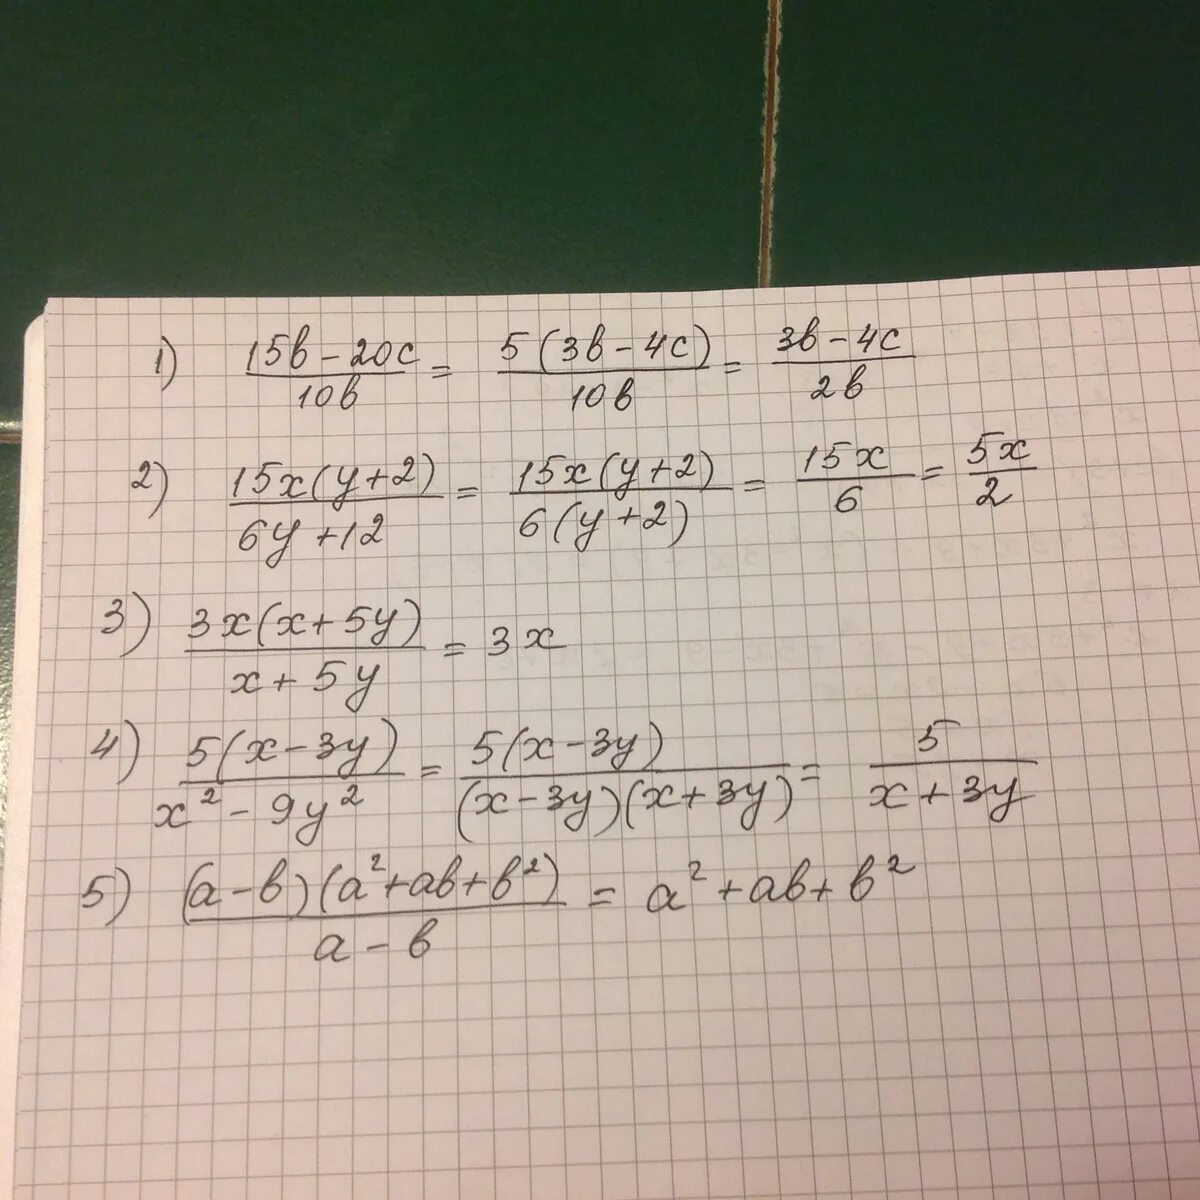 1) (15b-20c)/10b = 5(3b-4c)/10b = (3b-4c)/2b
2) 15x(y+2)/(6y+12) = 15x(y+2)/6(y+2) = 15x/6 = 5x/2
3) 3x(x+5y)/(x+5y) = 3x
4) 5(x-3y)/(x²-9y²) = 5(x-3y)/(x-3y)(x+3y) = 5/(x+3y)
5) (a-b)(a²+ab+b²)/(a-b) = a²+ab+b²